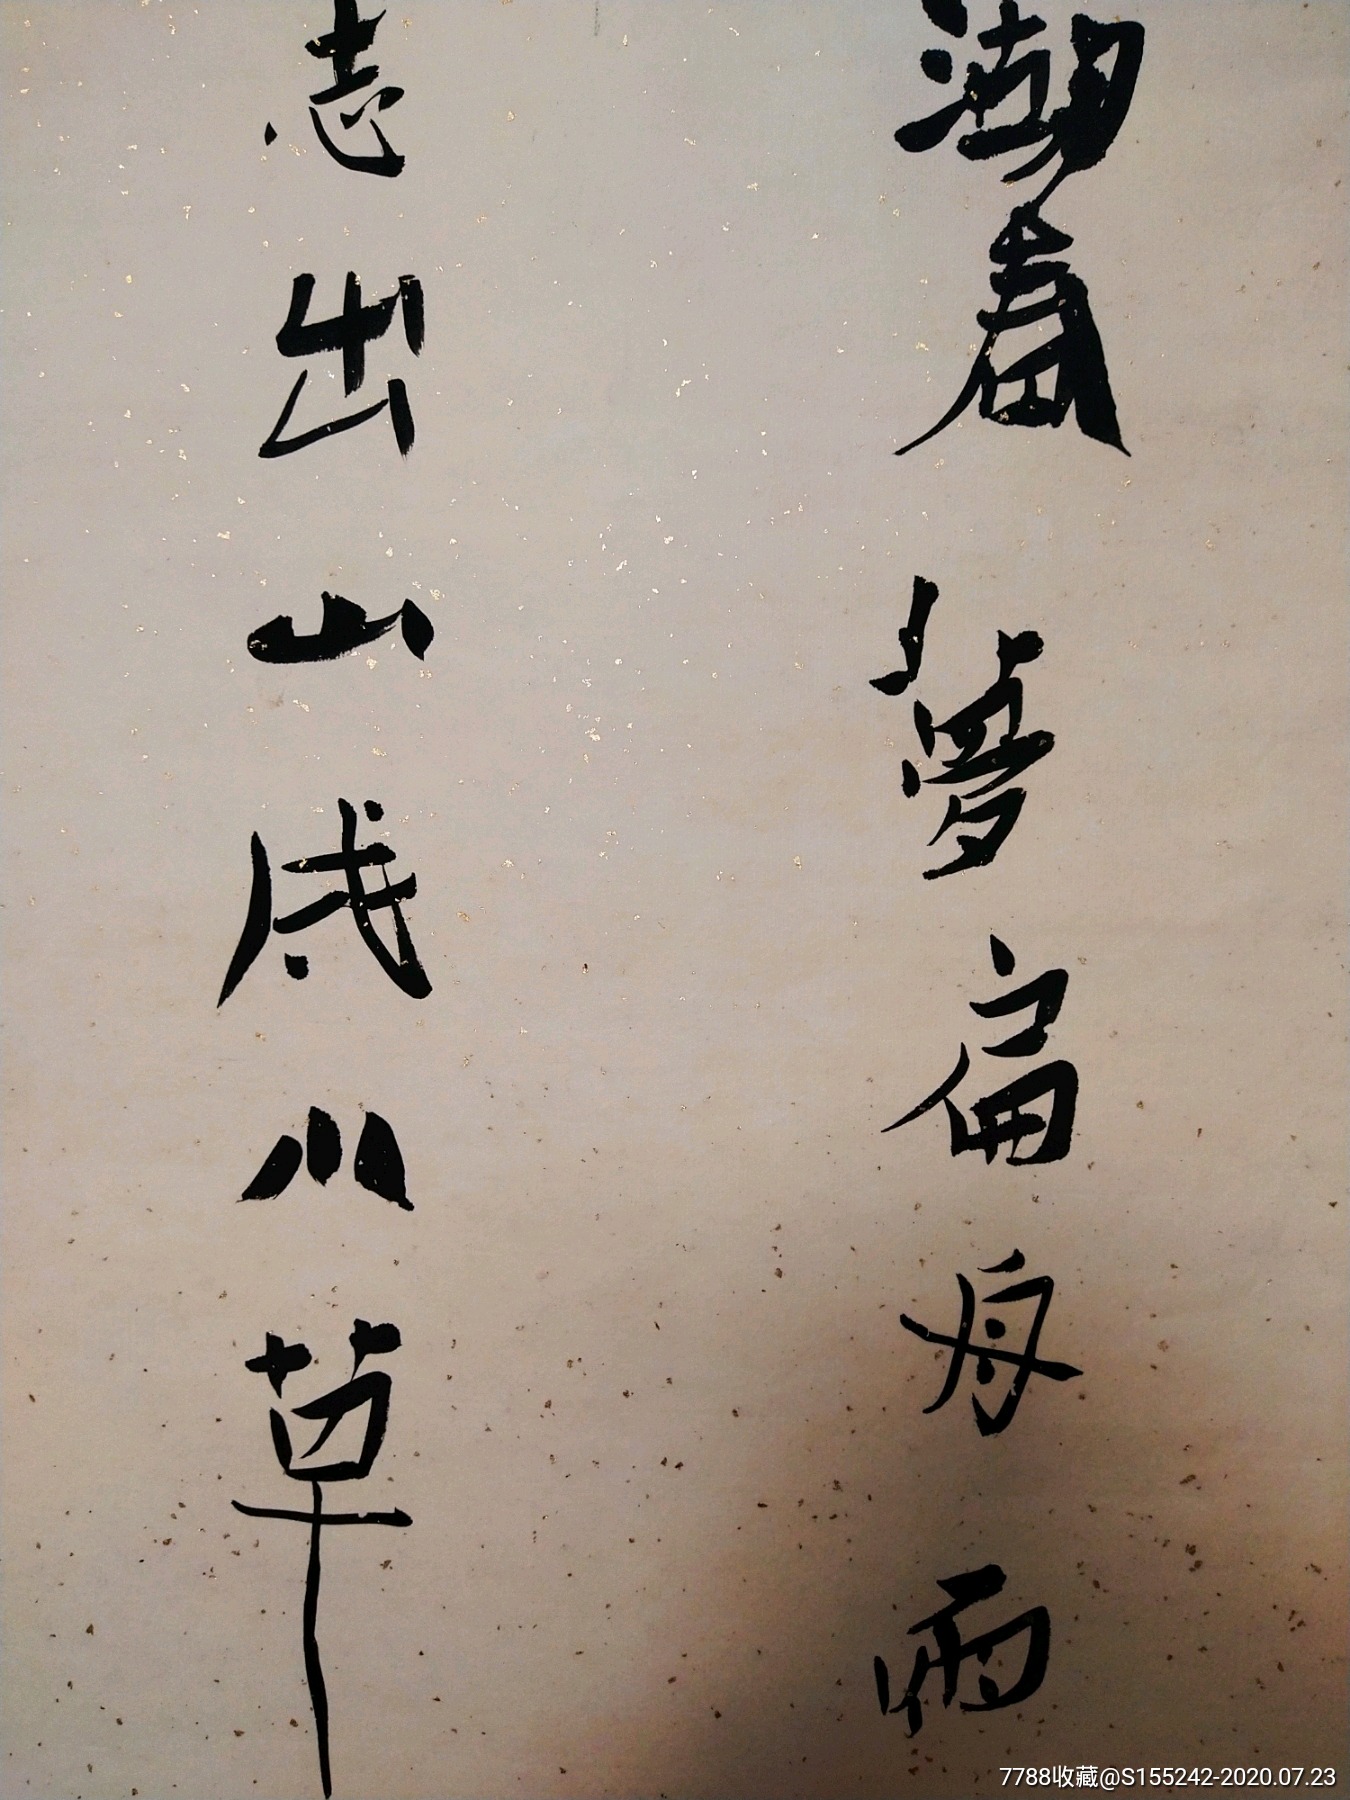 潮春夢扁舟雨
志出山成小草
7788收藏@S155242-2020.07.23